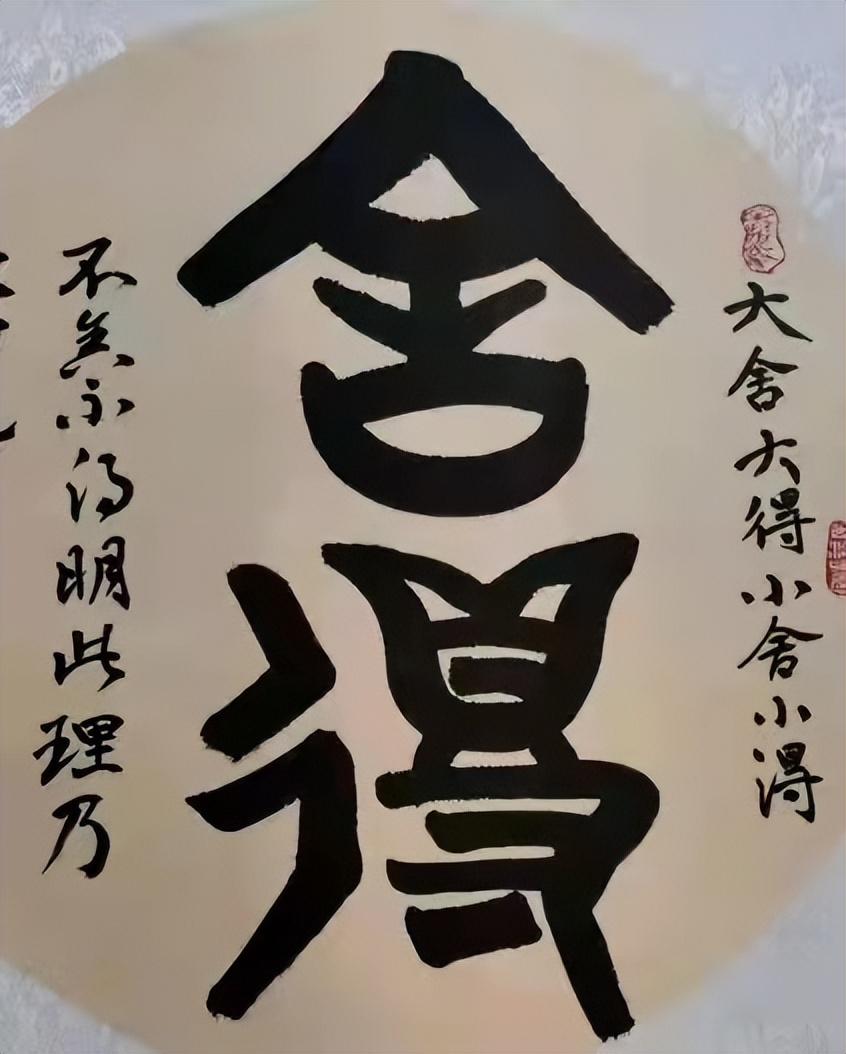 大舍大得小舍小得
舍得
不舍不得明此理乃